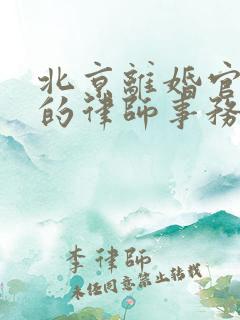 北京離婚官
的律師事務
李律師
未经同意禁止转载